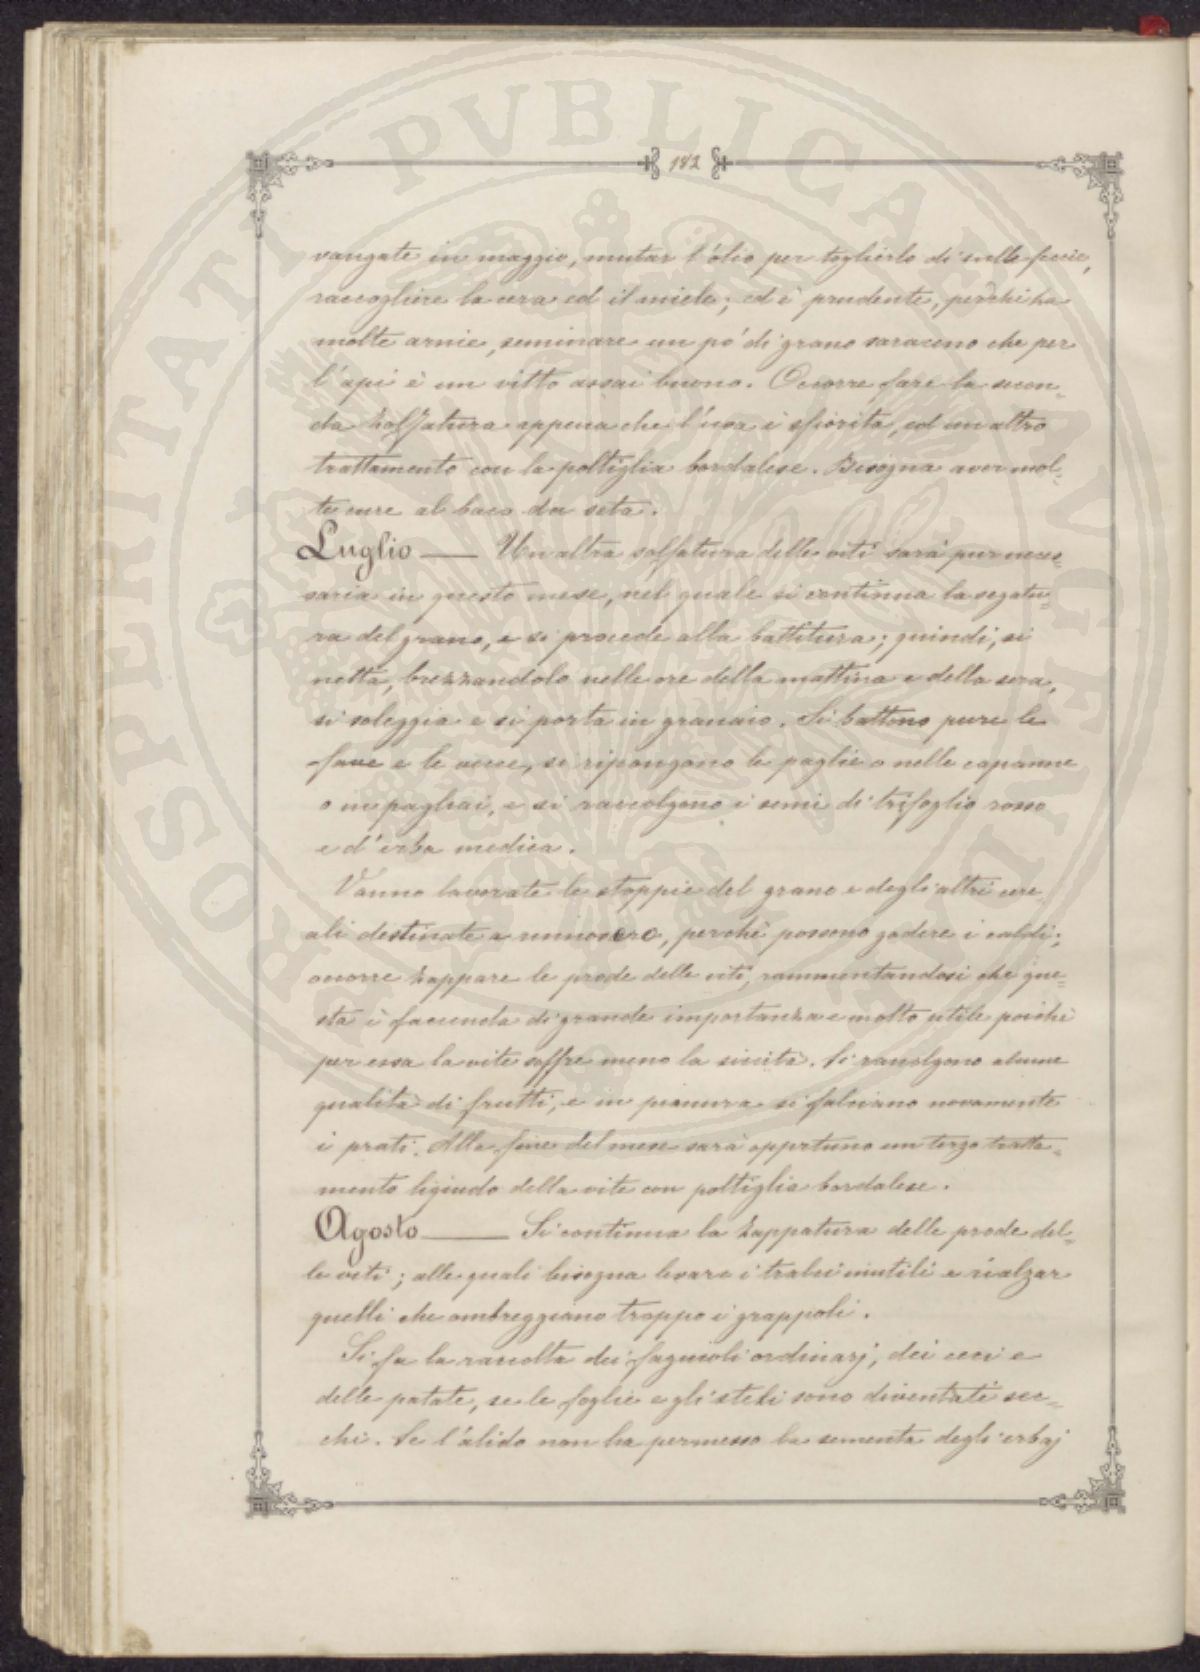 182
vangate in maggio, mutar l'olio per toglierlo di sulle feccie,
raccogliere la cera ed il miele; ed è prudente, per chi ha
molte arnie, seminare un po' di grano saraceno che per
l'api è un vitto assai buono. Occorre fare la secon=
da zolfatura appena che l'uva è sfiorita, ed un altro
trattamento con la poltiglia bordalese. Bisogna aver mol=
te cure al baco da seta.
Luglio — Un altra solfatura delle viti sarà pur neces=
saria in questo mese, nel quale si continua la segatu=
ra del grano, e si procede alla battitura; quindi, si
netta, brezzandolo nelle ore della mattina e della sera,
si soleggia e si porta in granaio. Si battono pure le
fave e le vecce, si ripongono le paglie o nelle capanne
o in pagliai, e si raccolgono i semi di trifoglio rosso
e d'erba medica.
Vanno lavorate le stoppie del grano e degli altri cere
ali destinate a rinnovero, perchè possono godere i caldi;
occorre zappare le prode delle viti, rammentandosi che que=
sta è faccenda di grande importanza e molto utile poichè
per essa la vite soffre meno la siccità. Si raccolgono alcune
qualità di frutti, e in pianura si falciano novamente
i prati. Alla fine del mese sarà opportuno un terzo tratta=
mento liquido della vite con poltiglia bordalese.
Agosto — Si continua la zappatura delle prode del=
le viti; alle quali bisogna levare i tralci inutili e rialzar
quelli che ombreggiano troppo i grappoli.
Si fa la raccolta dei fagiuoli ordinarj, dei ceci e
delle patate, se le foglie e gli steli sono diventati sec=
chi. Se l'alido non ha permesso la sementa degli erbaj
PROSPERITATI PVBLICAE AVGENDAE